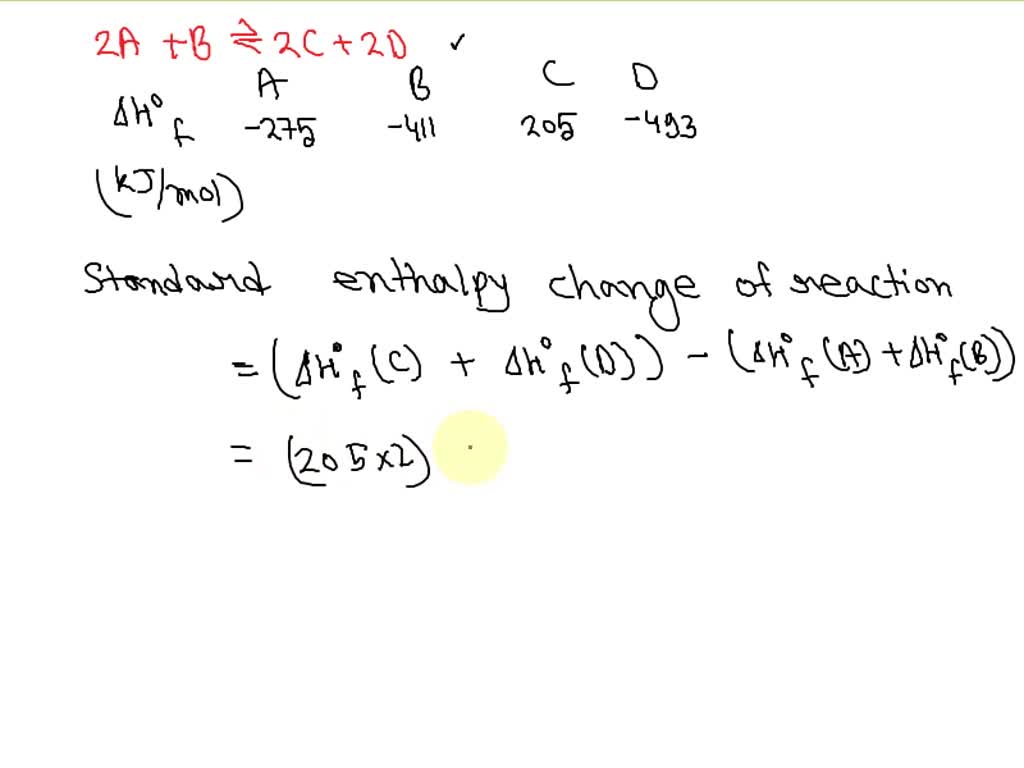 2A + B ⇌ 2C + 2D ✓
A B C D
ΔH°f -275 -411 205 -493
(kJ/mol)
Standard enthalpy change of reaction
= (ΔH°f (C) + ΔH°f (D)) - (ΔH°f (A) + ΔH°f (B))
= (205×2)